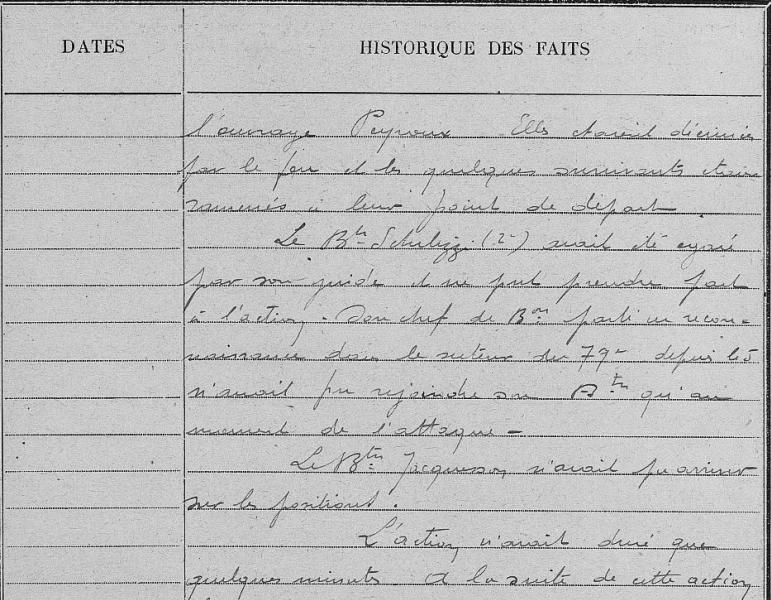 DATES HISTORIQUE DES FAITS
l'ouvrage Peyroux Elles étaient décimées
par le feu et les quelques survivants étaient
ramenés à leur point de départ.
Le Btn (2e) avait été égaré
par son guide et ne put prendre part
à l'action. Son chef de Bon parti en recon-
naissance dans le secteur du 79e depuis
n'avait pu rejoindre son Btn qu'au
moment de l'attaque -
Le Btn Jacquesson n'avait pu arriver
sur les positions.
L'action n'avait duré que
quelques minutes. A la suite de cette action